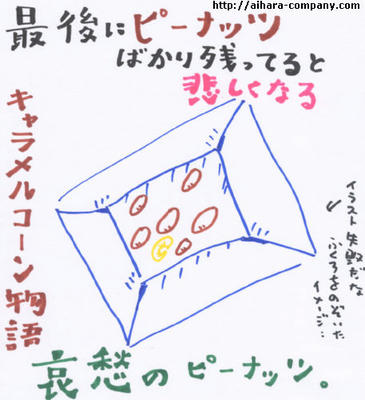 http://aihara-company.com
最後にピーナッツ
ばかり残ってると
悲しくなる
キャラメルコーン物語
イラスト失敗だな
ふくろをのぞいた
イメージ…
哀愁のピーナッツ。